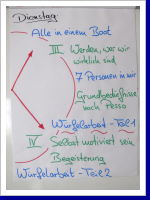 Dienstag:
Alle in einem Boot
III Werden, wer wir
wirklich sind
7 Personen in mir
Grundbedürfnisse
nach Pesso
Würfelarbeit - Teil 1
IV Selbst motiviert sein
Begeisterung
Würfelarbeit - Teil 2